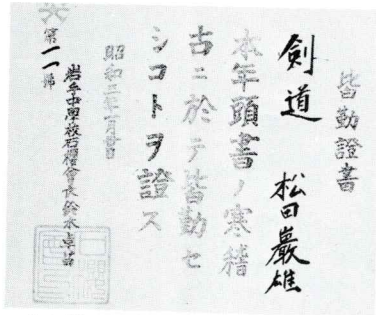 皆勤證書
剣道 松田巖雄
本年頭書ノ寒稽
古ニ於テ皆勤セ
シコトヲ證ス
昭和三年一月廿日
岩手中學校石櫻會長鈴木卓苗
第一一號